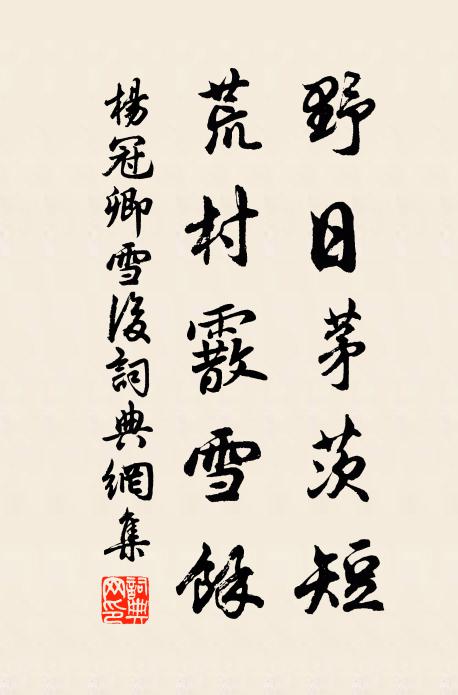 野日茅茨短
荒村霰雪餘
楊冠卿雪後詞典網集
詞典網印